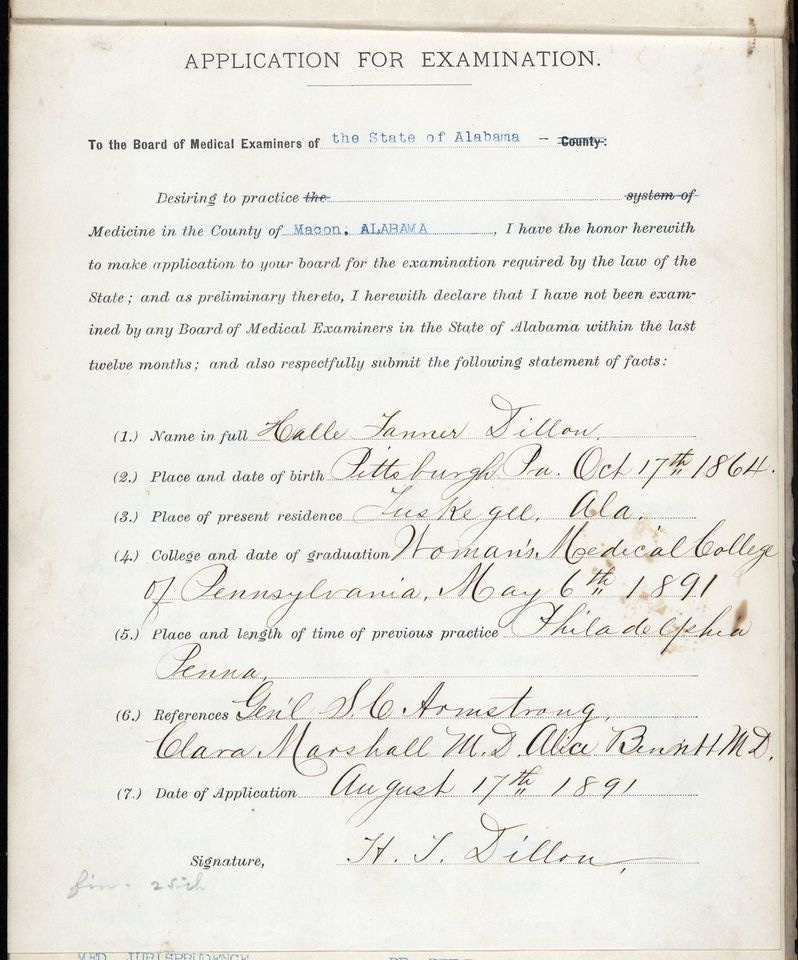 APPLICATION FOR EXAMINATION.
To the Board of Medical Examiners of the State of Alabama - County:
Desiring to practice the system of
Medicine in the County of Macon, ALABAMA, I have the honor herewith
to make application to your board for the examination required by the law of the
State; and as preliminary thereto, I herewith declare that I have not been exam-
ined by any Board of Medical Examiners in the State of Alabama within the last
twelve months; and also respectfully submit the following statement of facts:
(1.) Name in full Halle Tanner Dillon.
(2.) Place and date of birth Pittsburgh Pa. Oct 17th 1864.
(3.) Place of present residence Tuskegee, Ala.
(4.) College and date of graduation Woman's Medical College
of Pennsylvania, May 6th 1891
(5.) Place and length of time of previous practice Philadelphia
Penna,
(6.) References Gen'l S. C Armstrong,
Clara Marshall M.D. Alice Bennett M D.
(7.) Date of Application August 17th 1891
Signature, H. T. Dillon,
25th
MED. JURISPRUDENCE